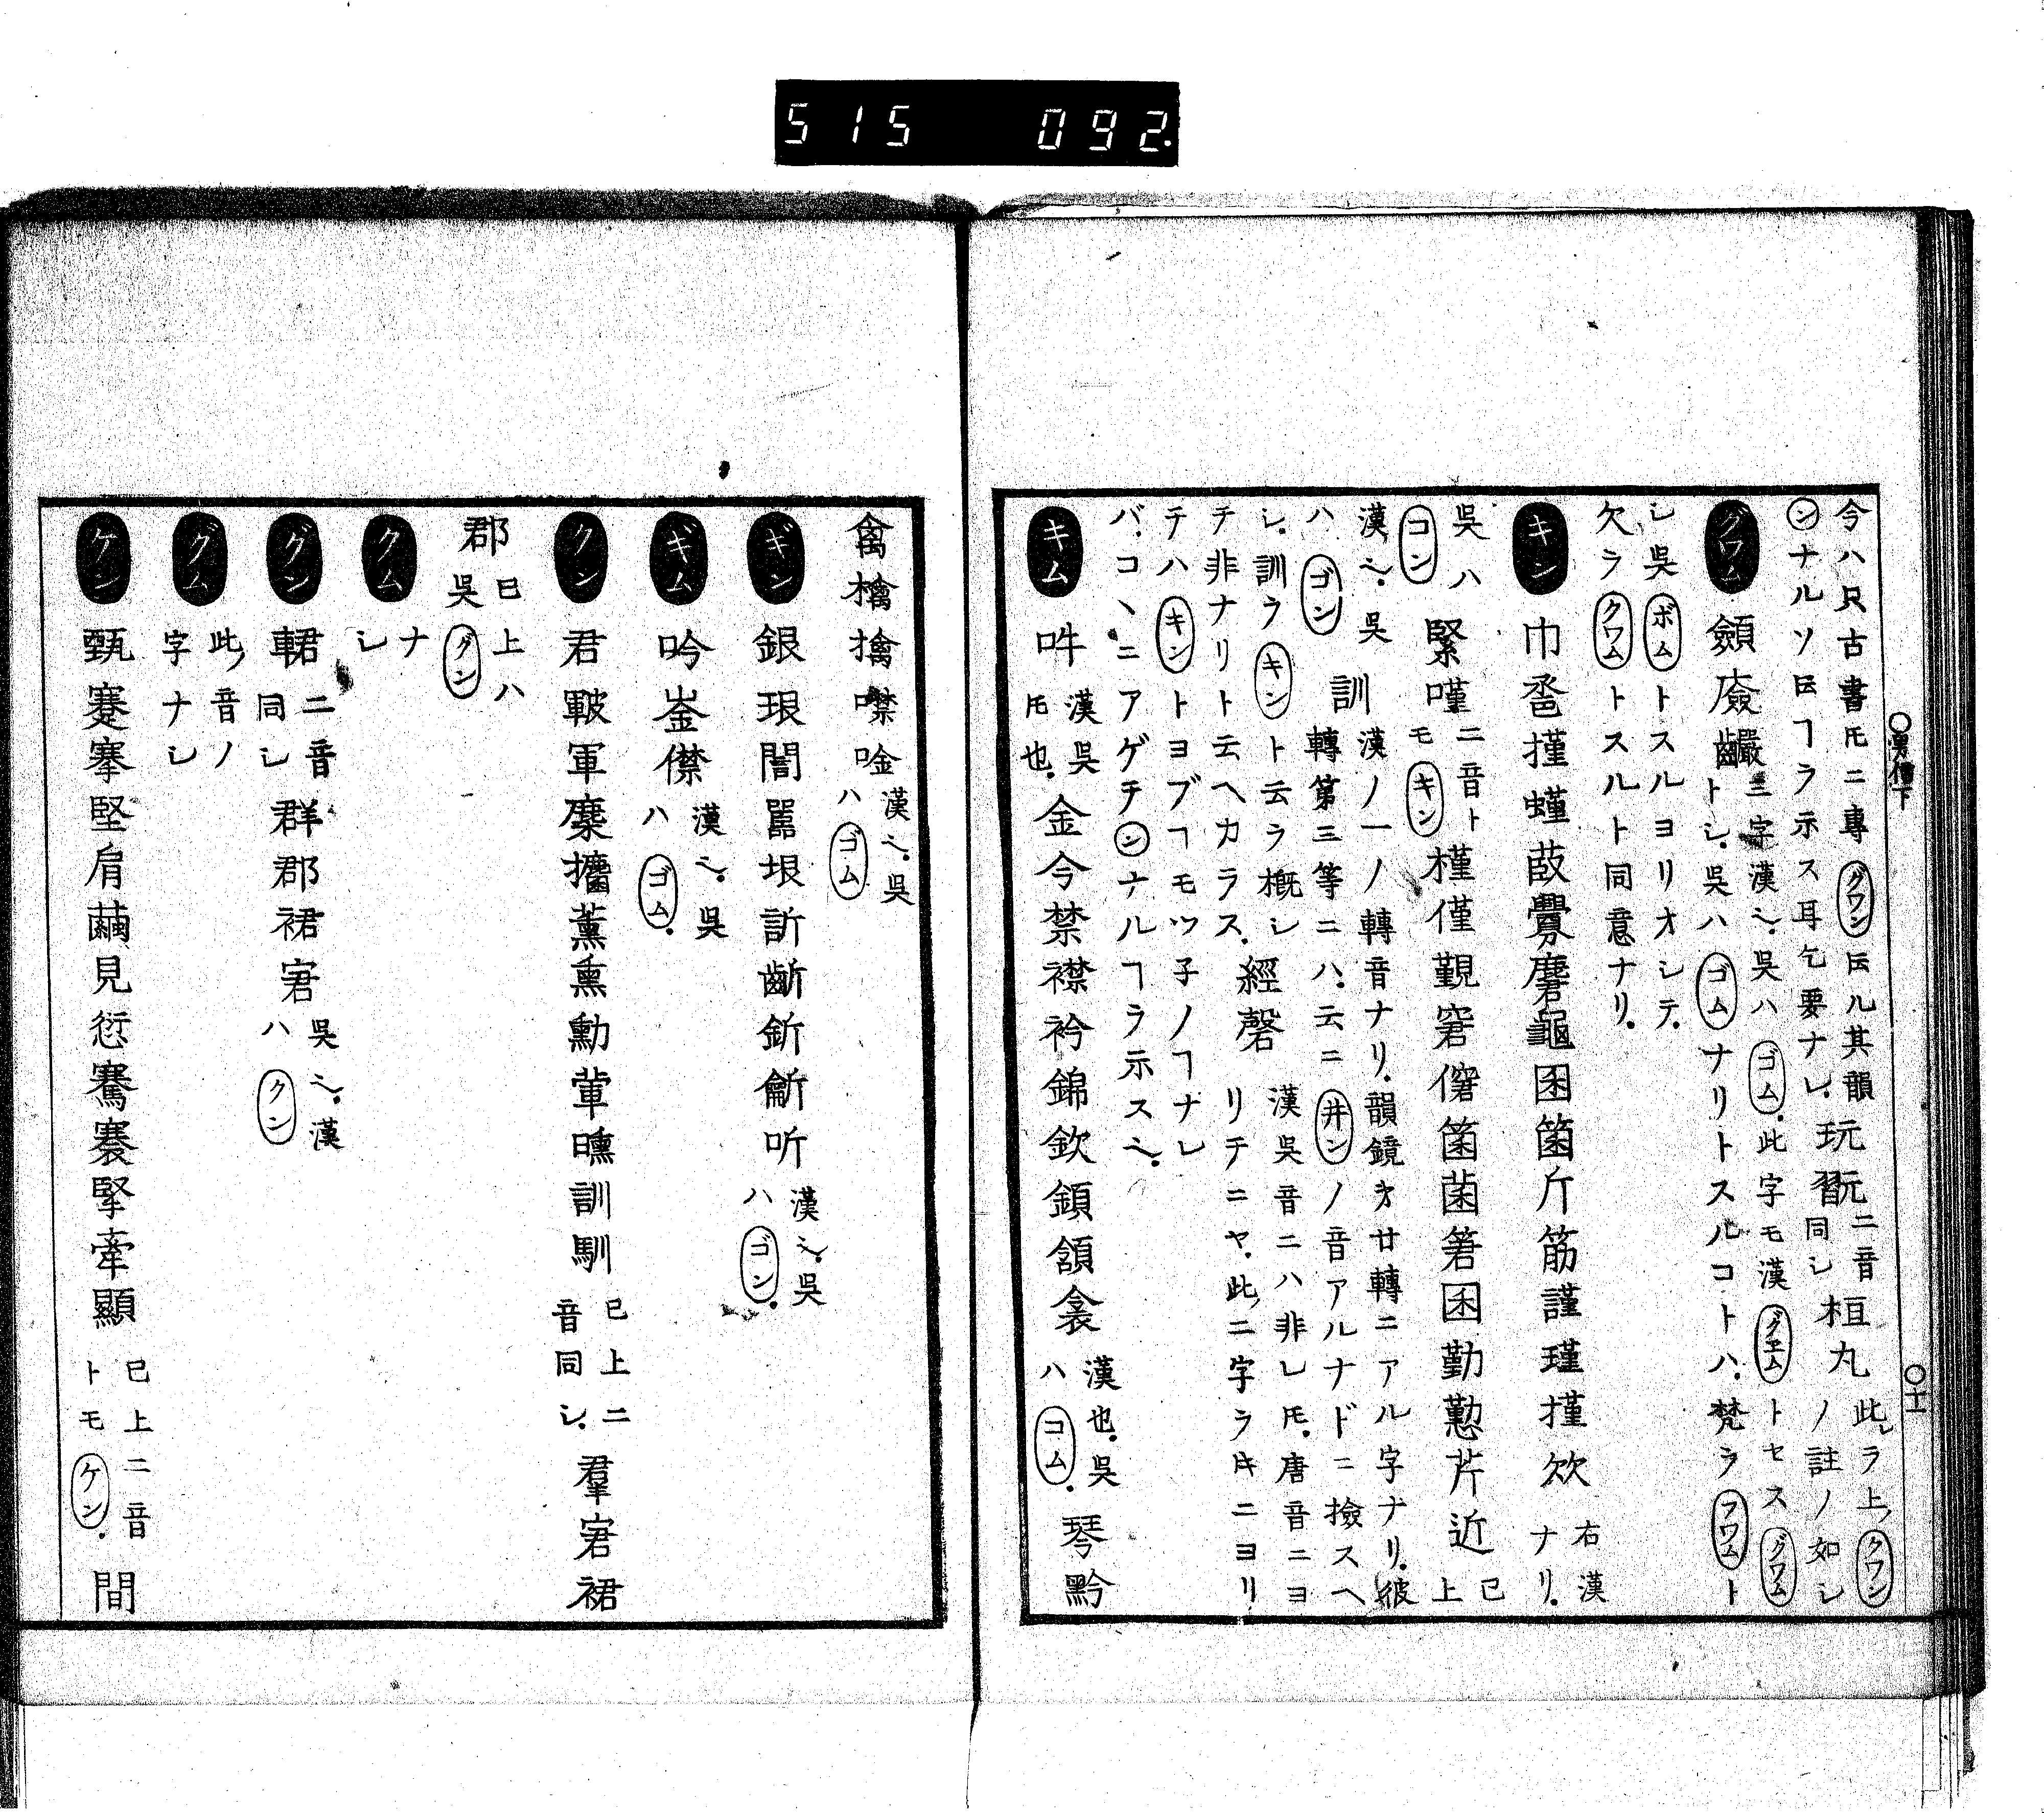 515 092.
今ハ只古書𪜈ニ専グワン𪜈ル其韻
ンナルソ𪜈ヿヲ示ス耳乞要ナレ玩翫二音同シ桓丸此ヲ上ノクワンノ註ノ如シ
グワム 顩㕒齴三字漢也呉ハゴム此字モ漢グヱムトセスグワム
トシ呉ハゴムナリトスルコトハ梵ヲフワムト
シ呉ボムトスルヨリオシテ
欠ヲクワムトスルト同意ナリ
キン 巾巹墐螼菣釁麏龜囷箘斤筋謹瑾槿欣右漢ナリ
呉ハコン 緊㗸二音トモキン 槿僅覲窘僒箘菌箬囷勤懃芹近已上
漢也呉ハゴン 訓漢ノ一ノ轉音ナリ韻鏡才廿轉ニアル字ナリ彼
轉第三等ニハ云ニ井ンノ音アルナドニ撿スヘ
シ訓ヲキント云ヲ概シ
チ非ナリト云ヘカラス 經磬漢呉音ニハ非レ𪜈唐音ニヨ
リテニヤ此二字ヲキニヨリ
テハキントヨブヿモツ子ノヿナレ
バコヽニアゲチンナルヿヲ示ス也
キム 吽漢呉𪜈也 金今禁襟衿錦欽顉頷衾漢也呉ハコム 琴黔
○漢僧下 ○十一
禽檎擒噤唫漢也呉ハゴム
ギン 銀珢誾嚚垠訢齗釿龂听漢也呉ハゴン
ギム 吟崟僸漢也呉ハゴム
クン 君皸軍麇攟薫熏勳葷曛訓馴已上二音同シ 羣宭裙
郡已上ハ呉グン
クム ナシ
グン 輑二音同シ 群郡裙宭呉也漢ハクン
グム 此ノ音ノ字ナシ
ケン 甄蹇搴堅肩繭見愆騫褰掔牽顯已上二音トモケン 間